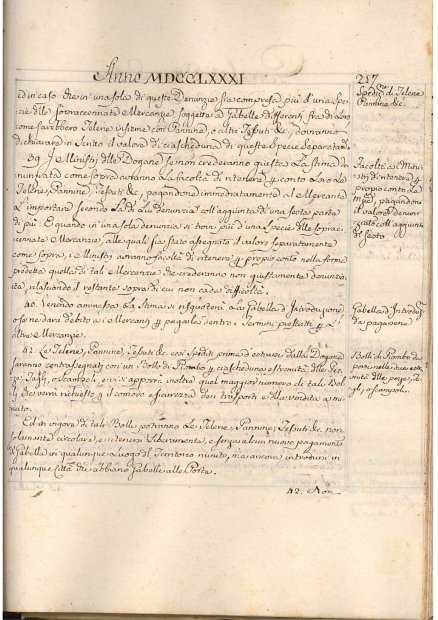 Anno MDCCLXXXI
257
Spediz.ni di Telene
Pannine &c.
ed in caso che in una sola di queste Denunzie sia compresa più d'una Spe-
cie delle sopraccennate Mercanzie soggette a Gabelle differenti fra di Loro
come sarebbero Telene insieme con Pannine, o altri Tessuti &c, dovranno
dichiarare in Scritto il valore di ciascheduna di queste Specie Separatam.
39. I Ministri delle Dogane se non crederanno giusta La Stima de-
nunziata come sopra avranno La facoltà di ritenere p conto Loro Le
Telene, Pannine, Tessuti &c, pagandone immediatamente al Mercante
L'importare secondo La di Lui denunzia coll'aggiunta di una sesta parte
di più. E quando in una sola denunzia vi sieno più d'una Specie delle soprac-
cennate Mercanzie, alle quali sia stato assegnato il valore separatamente
come sopra, i Ministri avranno facoltà di ritenere p proprio conto nella forma
predetta quelle di tali Mercanzie che crederanno non giustamente denunzia-
te, rilasciando il restante sopra di cui non cade difficoltà.
Facoltà ai Mini-
stri di ritenere p
proprio conto Le
Mercie, pagandone
il valore denun-
ziato coll'aggiunta
del Sesto.
40. Venendo ammessa La Stima si risquoterà La Gabella d'Introduzione,
o se ne darà debito ai Mercanti p pagarla dentro i Termini prescritti p L'
altre Mercanzie.
Gabella d'Introduz.ne
da pagarsene
41. Le Telene, Pannine, Tessuti &c. così Spediti prima d'estrarsi dalla Dogana
saranno contrassegnati con un Bollo di Piombo a ciascheduna estremità delle Pezze,
Tagli, o Scampoli, e vi si apporrà inoltre quel maggior numero di tali Bol-
li che verrà richiesto p il comodo e sicurezza dei trasporti e alla vendita a mi-
nuto.
Bolli di Piombo da
porsi nelle due estre-
mità delle pezze, ta-
gli, o scampoli.
Ed in vigore di tali Bolli, potranno Le Telene, Pannine, Tessuti &c. non
solamente circolare, e ritenersi Liberamente, e senza alcun nuovo pagamento
di Gabella in qualunque Luogo del Territorio riunito, ma ancora introdursi in
qualunque Città che abbiano Gabelle alle Porte.
42. Non